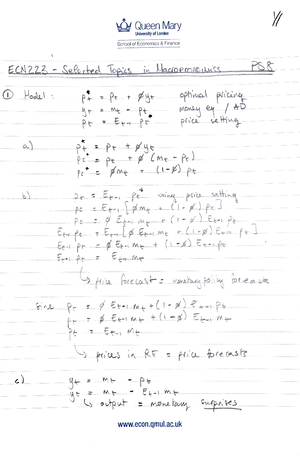 Queen Mary
University of London
School of Economics & Finance
ECN222 - Selected Topics in Macroeconomics PS8
① Model: p*t = pt + øyt optimal pricing
yt = mt - pt money eq / AD
pt = Et-1 p*t price setting
a) p*t = pt + øyt
p*t = pt + ø(mt - pt)
p*t = ømt + (1-ø) pt
b) pt = Et-1 p*t using price setting
pt = Et-1 [ømt + (1-ø) pt]
pt = ø Et-1 mt + (1-ø) Et-1 pt
Et-1 pt = Et-1 [ø Et-1 mt + (1-ø) Et-1 pt]
Et-1 pt = ø Et-1 mt + (1-ø) Et-1 pt
Et-1 pt = Et-1 mt
↳ price forecast = monetary policy forecasts
Since pt = ø Et-1 mt + (1-ø) Et-1 pt
pt = ø Et-1 mt + (1-ø) Et-1 mt
pt = Et-1 mt
↳ prices in = price forecasts
c) yt = mt - pt
yt = mt - Et-1 mt
↳ output = monetary surprises
www.econ.qmul.ac.uk